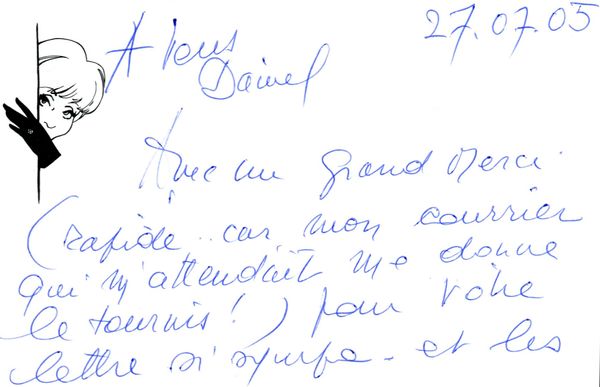 27.07.05
A vous
Daniel
Avec un grand Merci
(rapide.. car mon courrier
qui m'attendait me donne
le tournis!) pour votre
lettre si sympa - et les